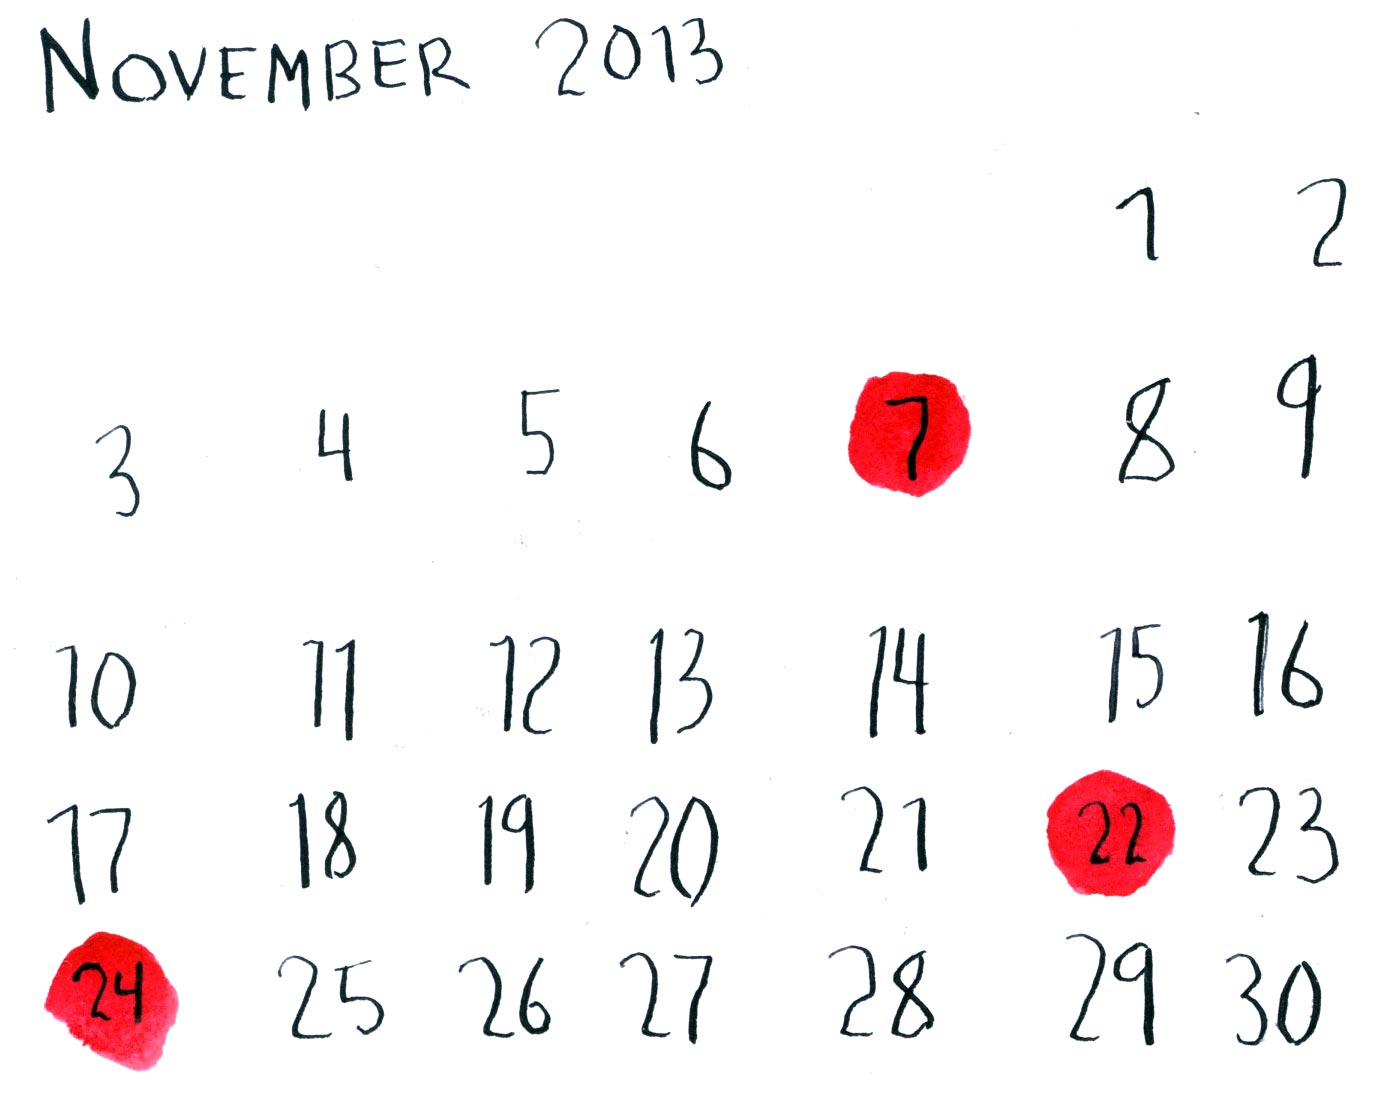 NOVEMBER 2013
1 2
3 4 5 6 7 8 9
10 11 12 13 14 15 16
17 18 19 20 21 22 23
24 25 26 27 28 29 30